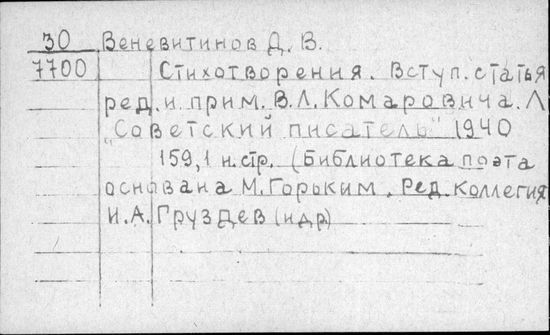 30 Веневитинов Д. В.
7700 Стихотворения. Вступ. статья
ред. и прим. В. Л. Комаровича. Л
"Советский писатель" 1940
159, 1 н. стр. (Библиотека поэта
основана М. Горьким. Ред. коллегия
И. А. Груздев (и др)